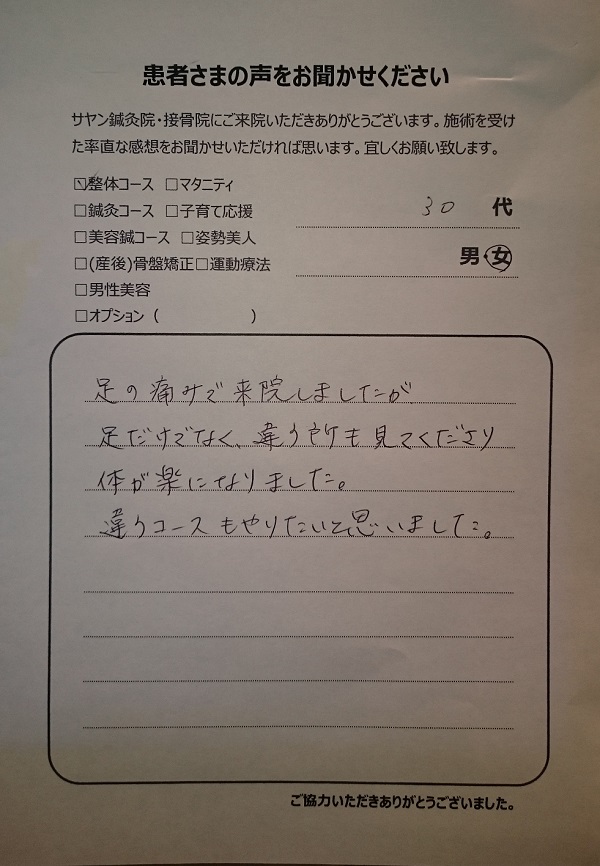 患者さまの声をお聞かせください
サヤン鍼灸院・接骨院にご来院いただきありがとうございます。施術を受け
た率直な感想をお聞かせいただければ思います。宜しくお願い致します。
☑整体コース □マタニティ
□鍼灸コース □子育て応援
30 代
□美容鍼コース □姿勢美人
□(産後)骨盤矯正□運動療法
男・女
□男性美容
□オプション ( )
足の痛みで来院しましたが
足だけでなく、違う所も見てくださり
体が楽になりました。
違うコースもやりたいと思いました。
ご協力いただきありがとうございました。